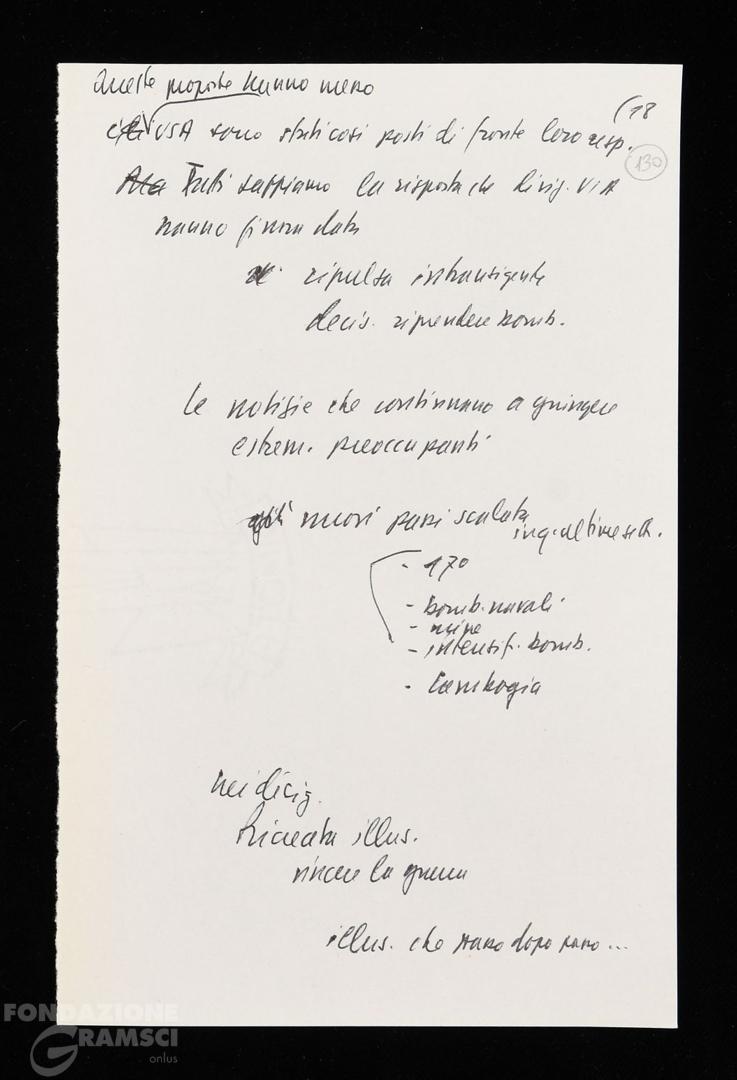 Queste proposte hanno messo
(18
gli USA sono stati così posti di fronte loro resp.
130
Ma Tutti sappiamo la risposta che dirig. USA
hanno finora dato
ripulsa intransigente
decis. riprendere bomb.
le notizie che continuano a giungere
estrem. preoccupanti
nuovi passi scalata
in q. ultime sett.
- 170
- bomb. navali
- mine
- intensif. bomb.
- Cambogia
nei dirig.
Ricreata illus.
vincere la guerra
illus. che passo dopo passo ...
FONDAZIONE
GRAMSCI
onlus